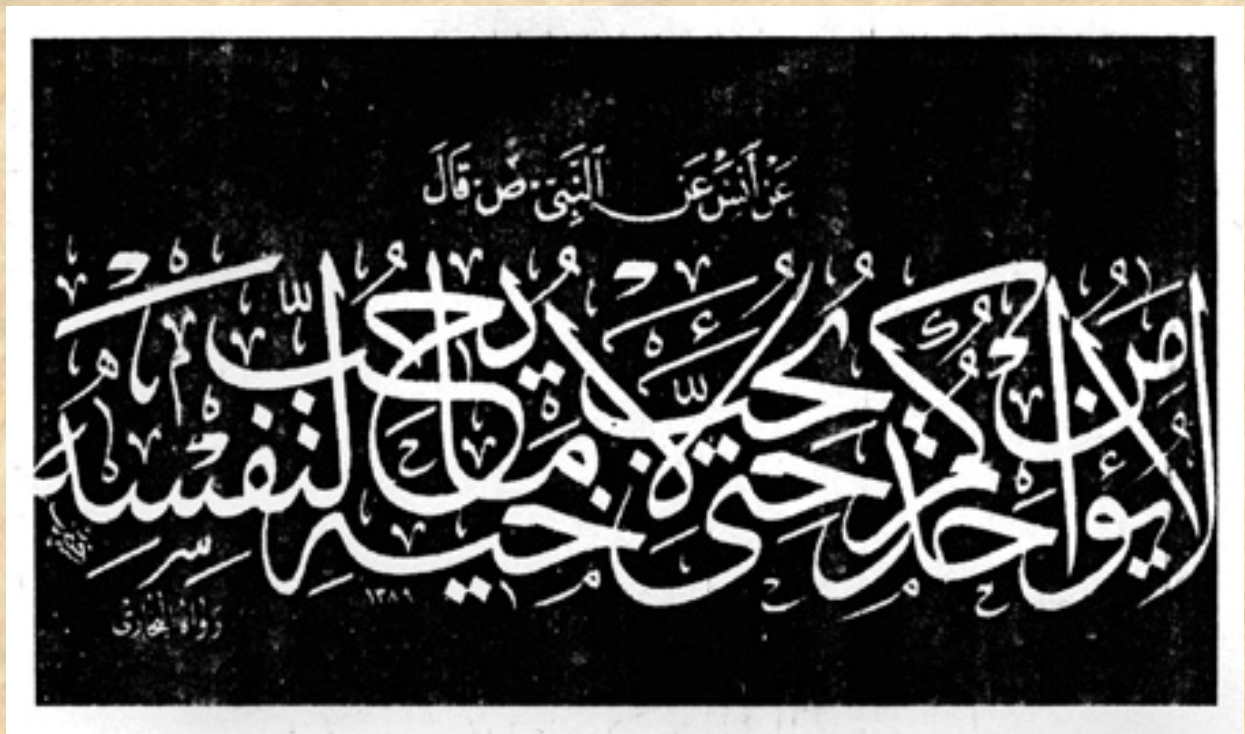 عَنْ أَنَسٍ عَنِ النَّبِيِّ ص قَالَ
لا يؤمن أحدكم حتى يحب لأخيه ما يحب لنفسه
١٣٨٩
رواه البخاري